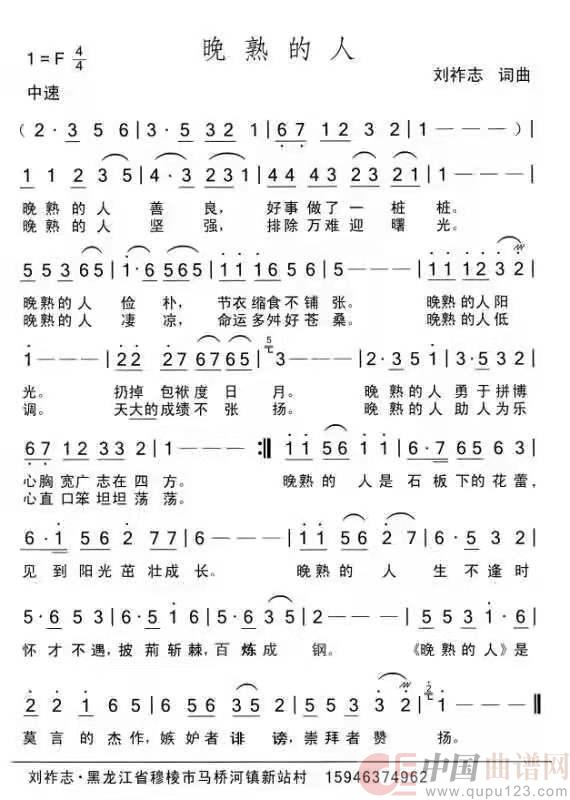 晚熟的人
1=F 4/4
刘祚志 词曲
中速
(2·3 5 6|3·5 3 2|6 7 1 2 3 2|1———)|
1 1 2 3 5|4·3 2 1|4 4 3 2 2 3 2 1|1———|
晚熟的人 善 良, 好事做了一 桩桩。
晚熟的人 坚 强, 排除万难迎 曙光。
5 5 3 6 5|1·6 5 6 5|5 5 6 1 2 6 5|5———|1 1 1 2 3 2|
晚熟的人 俭 朴, 节衣缩食不铺张。 晚熟的人阳
晚熟的人 凄 凉, 命运多舛好苍桑。 晚熟的人低
1———|2 2 2 7 6 7 6 5|3———|2·3 5 1|3·5 3 2|
光。 扔掉 包袱度日 月。 晚熟的人 勇于拼博
调。 天大的成绩不张 扬。 晚熟的人 助人为乐
6 7 1 2 3 3 2 2|1———:‖1 1 5 6 1 1|6·7 6 5 6 3|
心胸宽广志在四 方。 晚熟的 人是石板下的花蕾,
心直口笨坦坦荡 荡。
6·1 5 6 2 7 7|6———|5 5 6 1 2 7 6|5·6 2 3|
见 到 阳光茁 壮成 长。 晚熟的 人 生不逢时
5·6 5 3|5·6 2 1|5·6 3 5|2———|5 5 3 5 1|
怀才不遇,披荆斩棘,百炼成 钢。 《晚熟的人》是
2 2 1 6 5 2|5·6 5 2 1 6|5 5 5 3 3 2|1———‖
莫言的杰作,嫉妒者诽谤,崇拜者赞 扬。
刘祚志·黑龙江省穆棱市马桥河镇新站村 15946374962
中国曲谱网
www.qupu123.com